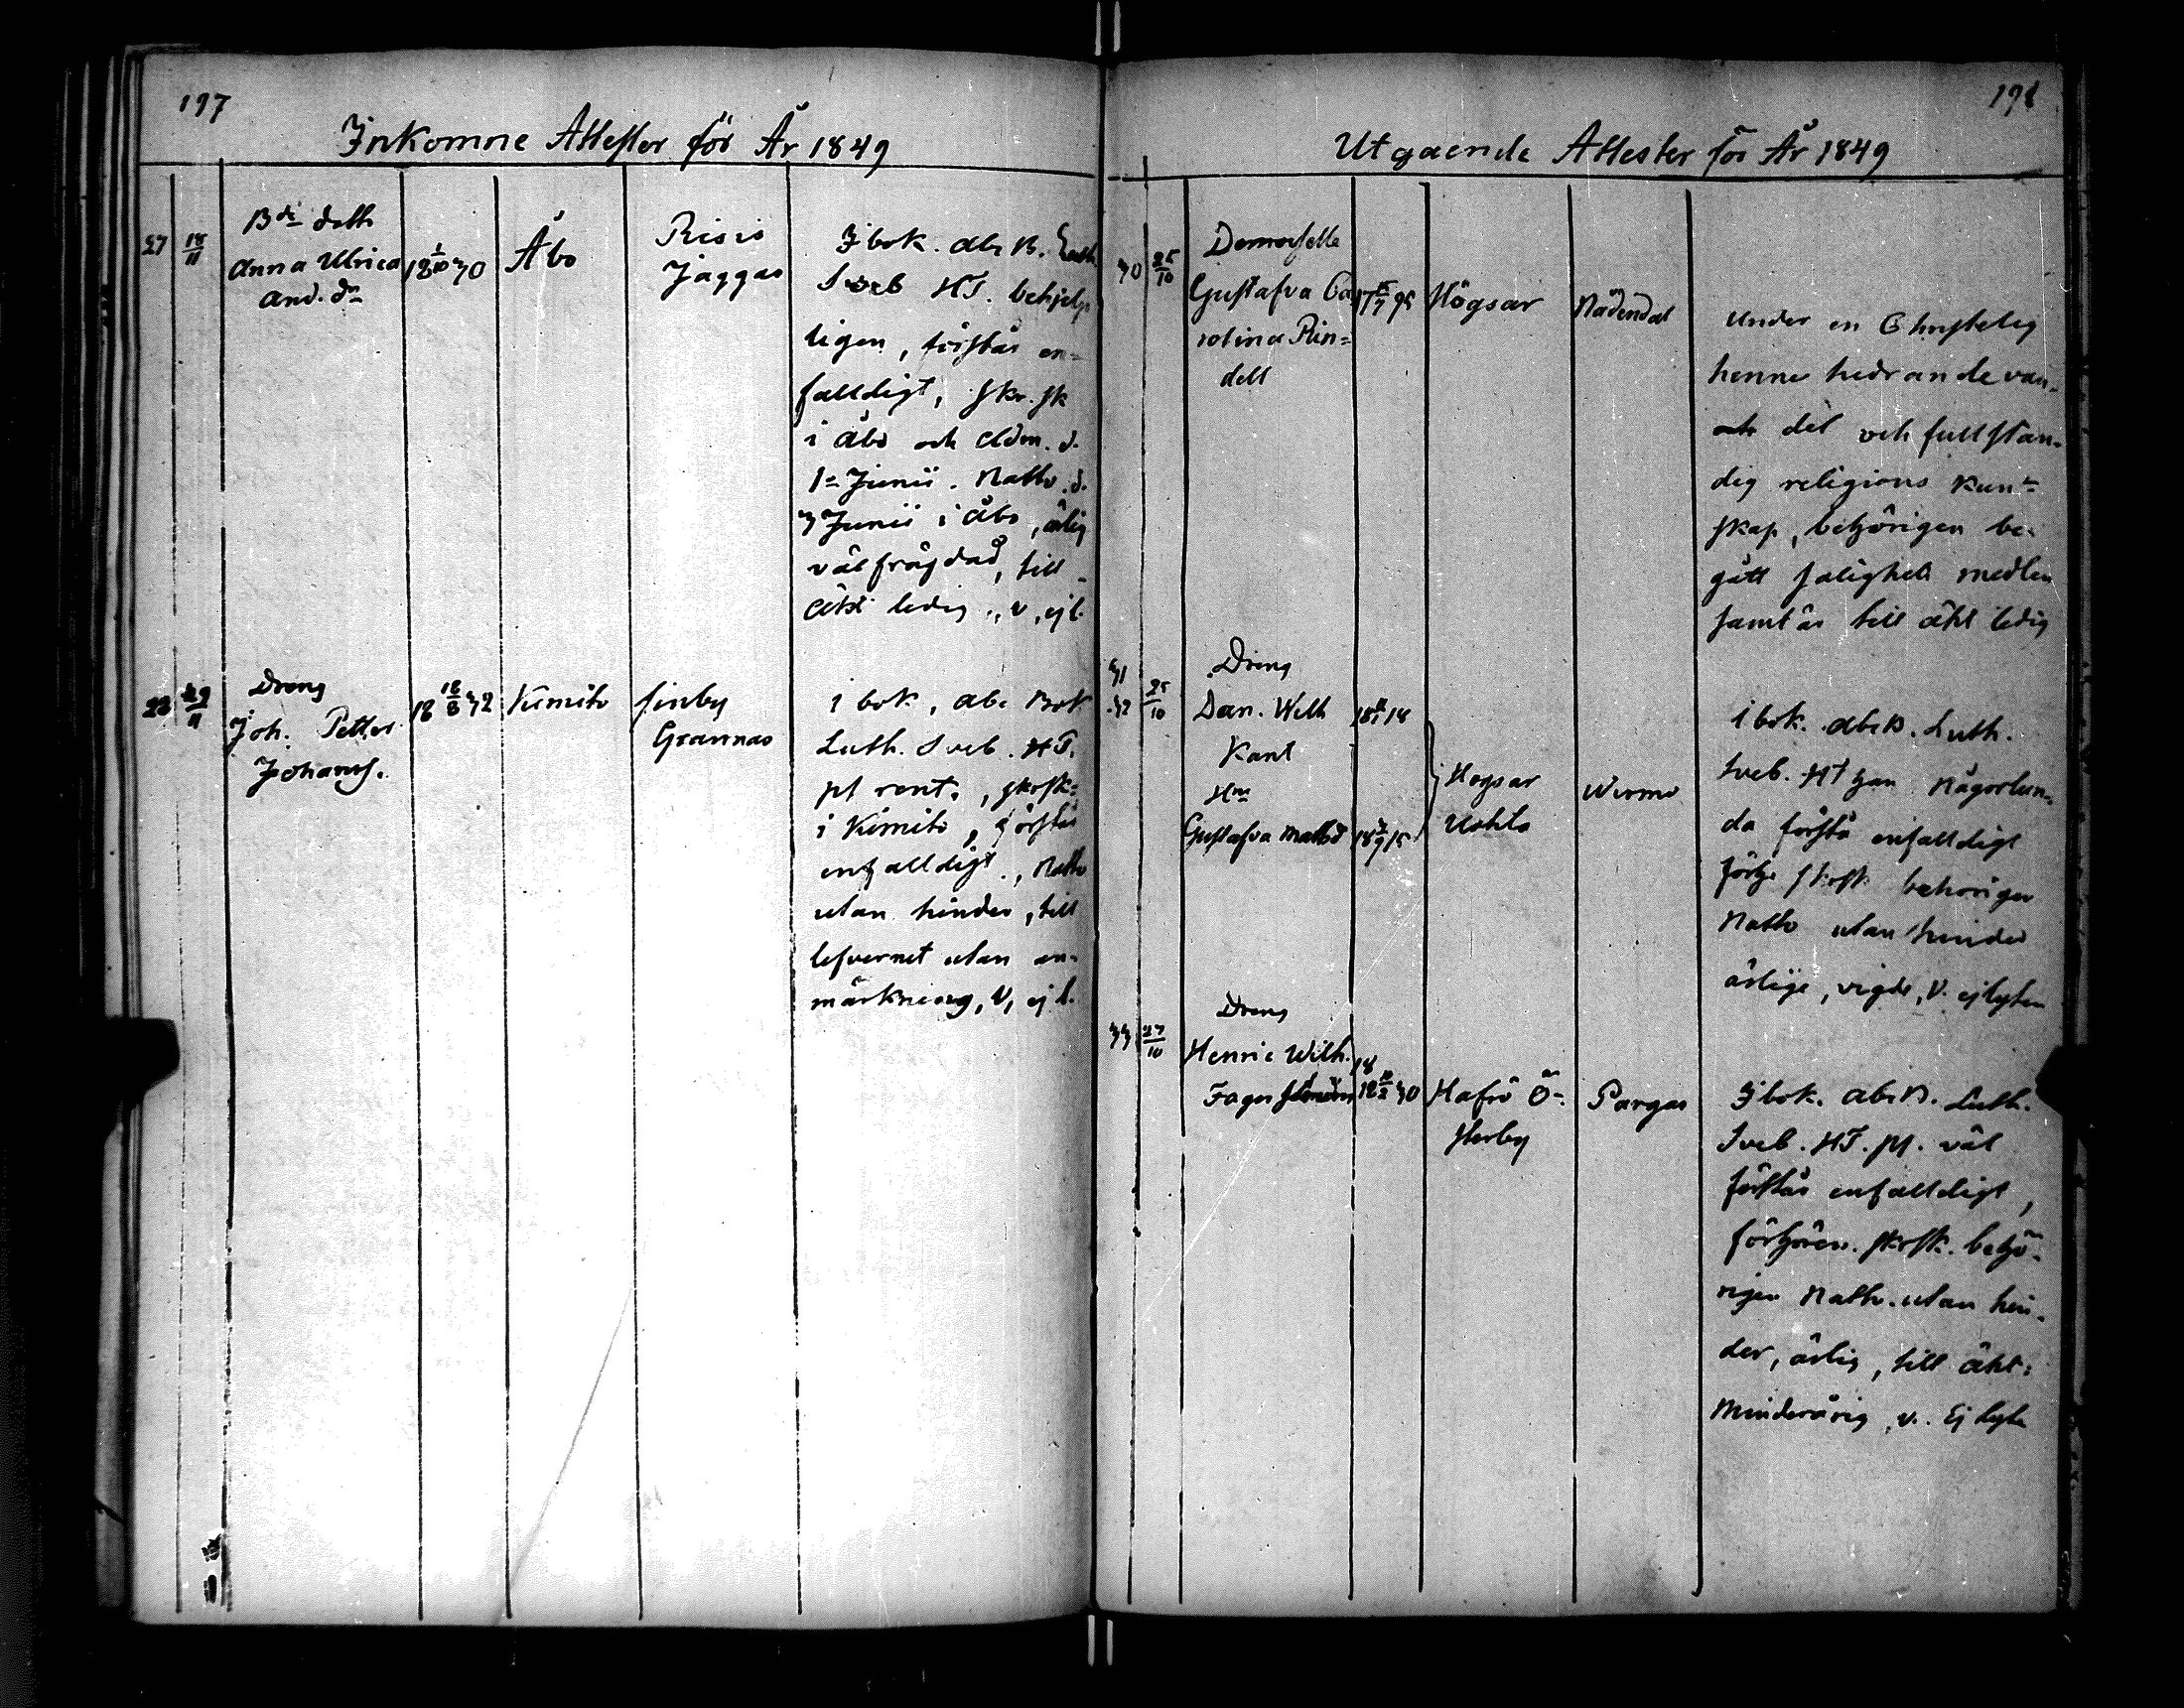 197
Inkomne Attester för År 1849
27 18/11
Bde dottr
Anna Ulrica
And. dr
18 1/10 30
Åbo
Risis
Jäggas
I bok. Abc B. Luth.
Sveb HT. behjelp
ligen, förstår en=
falldigt, skr. sk
i Åbo och Adm. d.
1a Junii. Nattv. d.
3 Junii i Åbo, ärlig
välfräjdad, till
äkt ledig, v, ej l.
28 29/11
Dreng
Joh. Petter
Johans.
18 18/8 32
Kimito
finby
Grannas
i bok, abc Bok
Luth. Sveb. HT.
pl rent., skrsk=
i Kimito, förstår
enfalldigt, Nattv
utan hinder, till
lefvernet utan an-
märkning, V, ej l.
191
Utgaende Attester för År 1849
30 25/10
Demoiselle
Gustafva Ca
rolina Rin=
dell
Högsar
Nådendal
Under en Christelig
henne hedrande van-
del och fullstän-
dig religions kun-
skap, behörigen be-
gått salighets medlen
samt är till äkt ledig
31
32 25/10
Dreng
Dan. Wilh
Kant
Hm
Gustafva Mattsd
Hogsar
Uohls
Wirmo
i bok. abc B. Luth.
Sveb. HT han någorlun-
da förstå enfalldigt
förh. skrsk behorigen
Nattv utan hinder
ärlige, vigde, V. ej lyten
33 27/10
Dreng
Henric Wilh.
Fager
18
30
Hafrö Ö-
sterby
Pargas
I bok. Abc B. Luth.
Sveb. HT. pl. väl
förstår enfalldigt,
förhören. skrsk. behö-
rigen Nattv. utan hin-
der, ärlig, till äkt:
Minderårig, v. Ej lyte